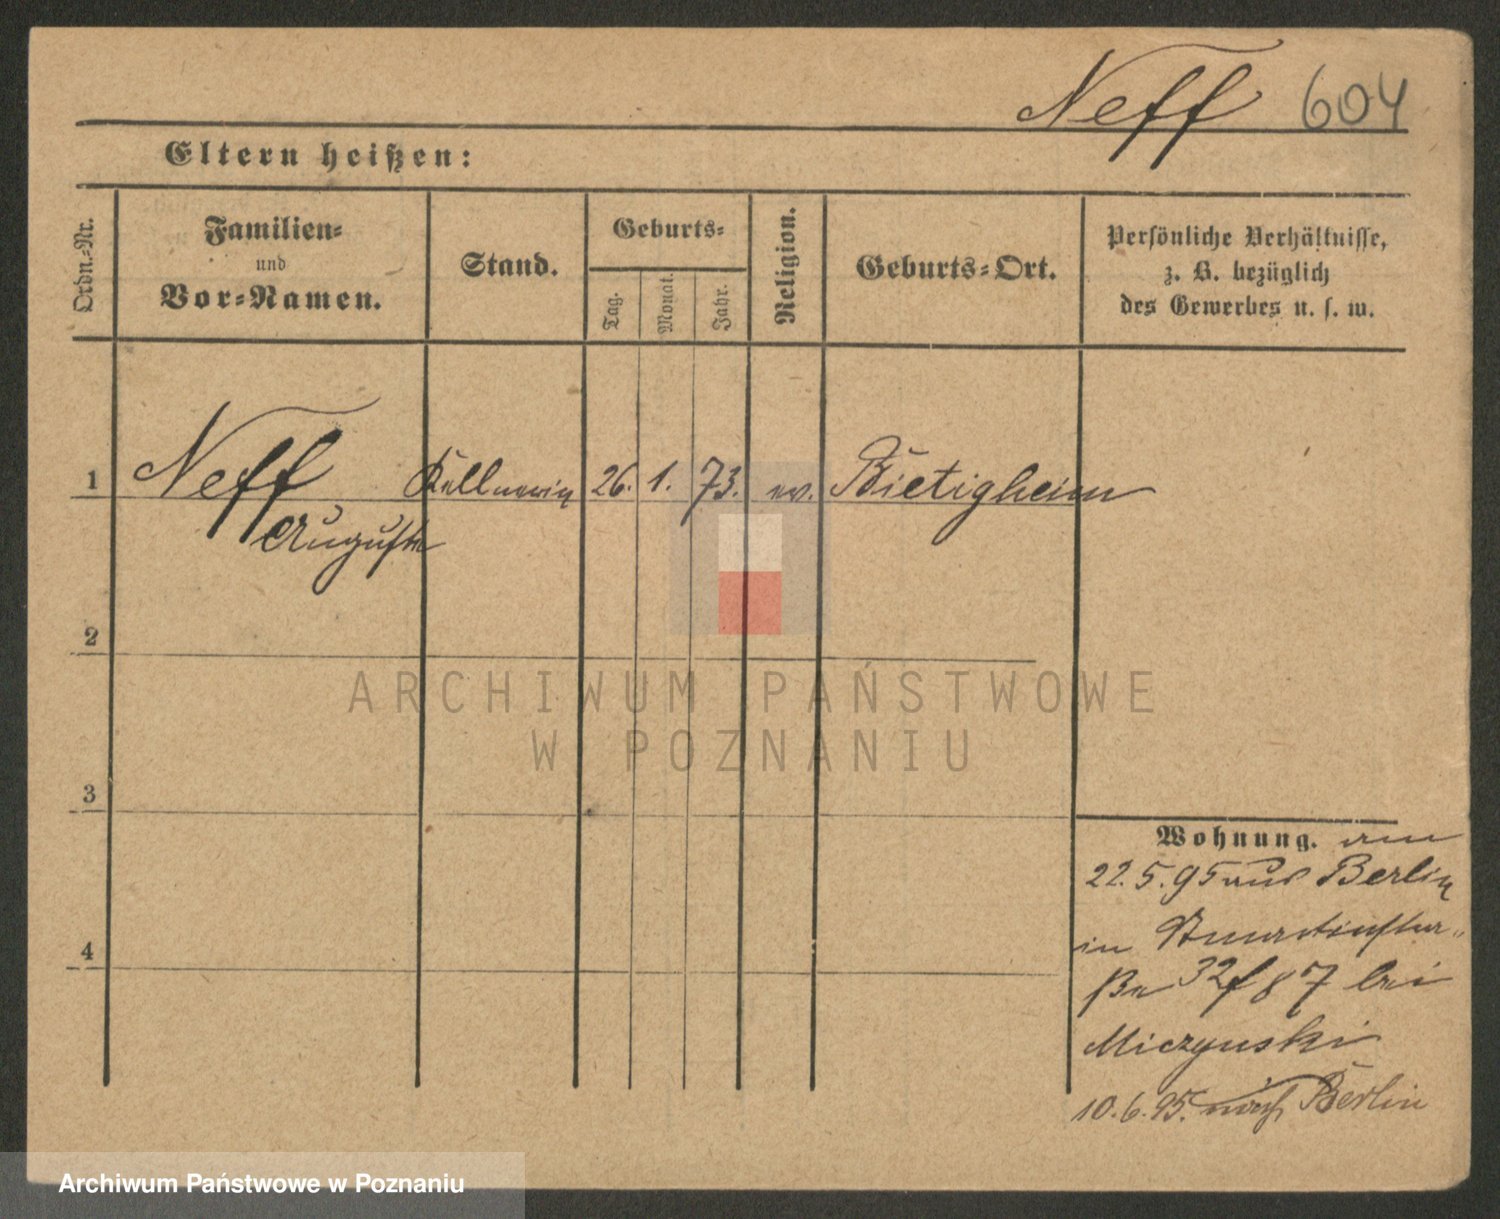 Neff 604
Eltern heißen:
Ordn.-Nr.
Familien-
und
Vor-Namen.
Stand.
Geburts-
Tag.
Monat.
Jahr.
Religion.
Geburts-Ort.
Persönliche Verhältnisse,
z. B. bezüglich
des Gewerbes u. s. w.
1 Neff Kellnerin 26. 1. 73. ev. Bietigheim
Auguste
2
3
4
Wohnung. am
22.5.95 aus Berlin
in
32 bei
Miczynski
10.6.95. nach Berlin
ARCHIWUM PAŃSTWOWE
W POZNANIU
Archiwum Państwowe w Poznaniu